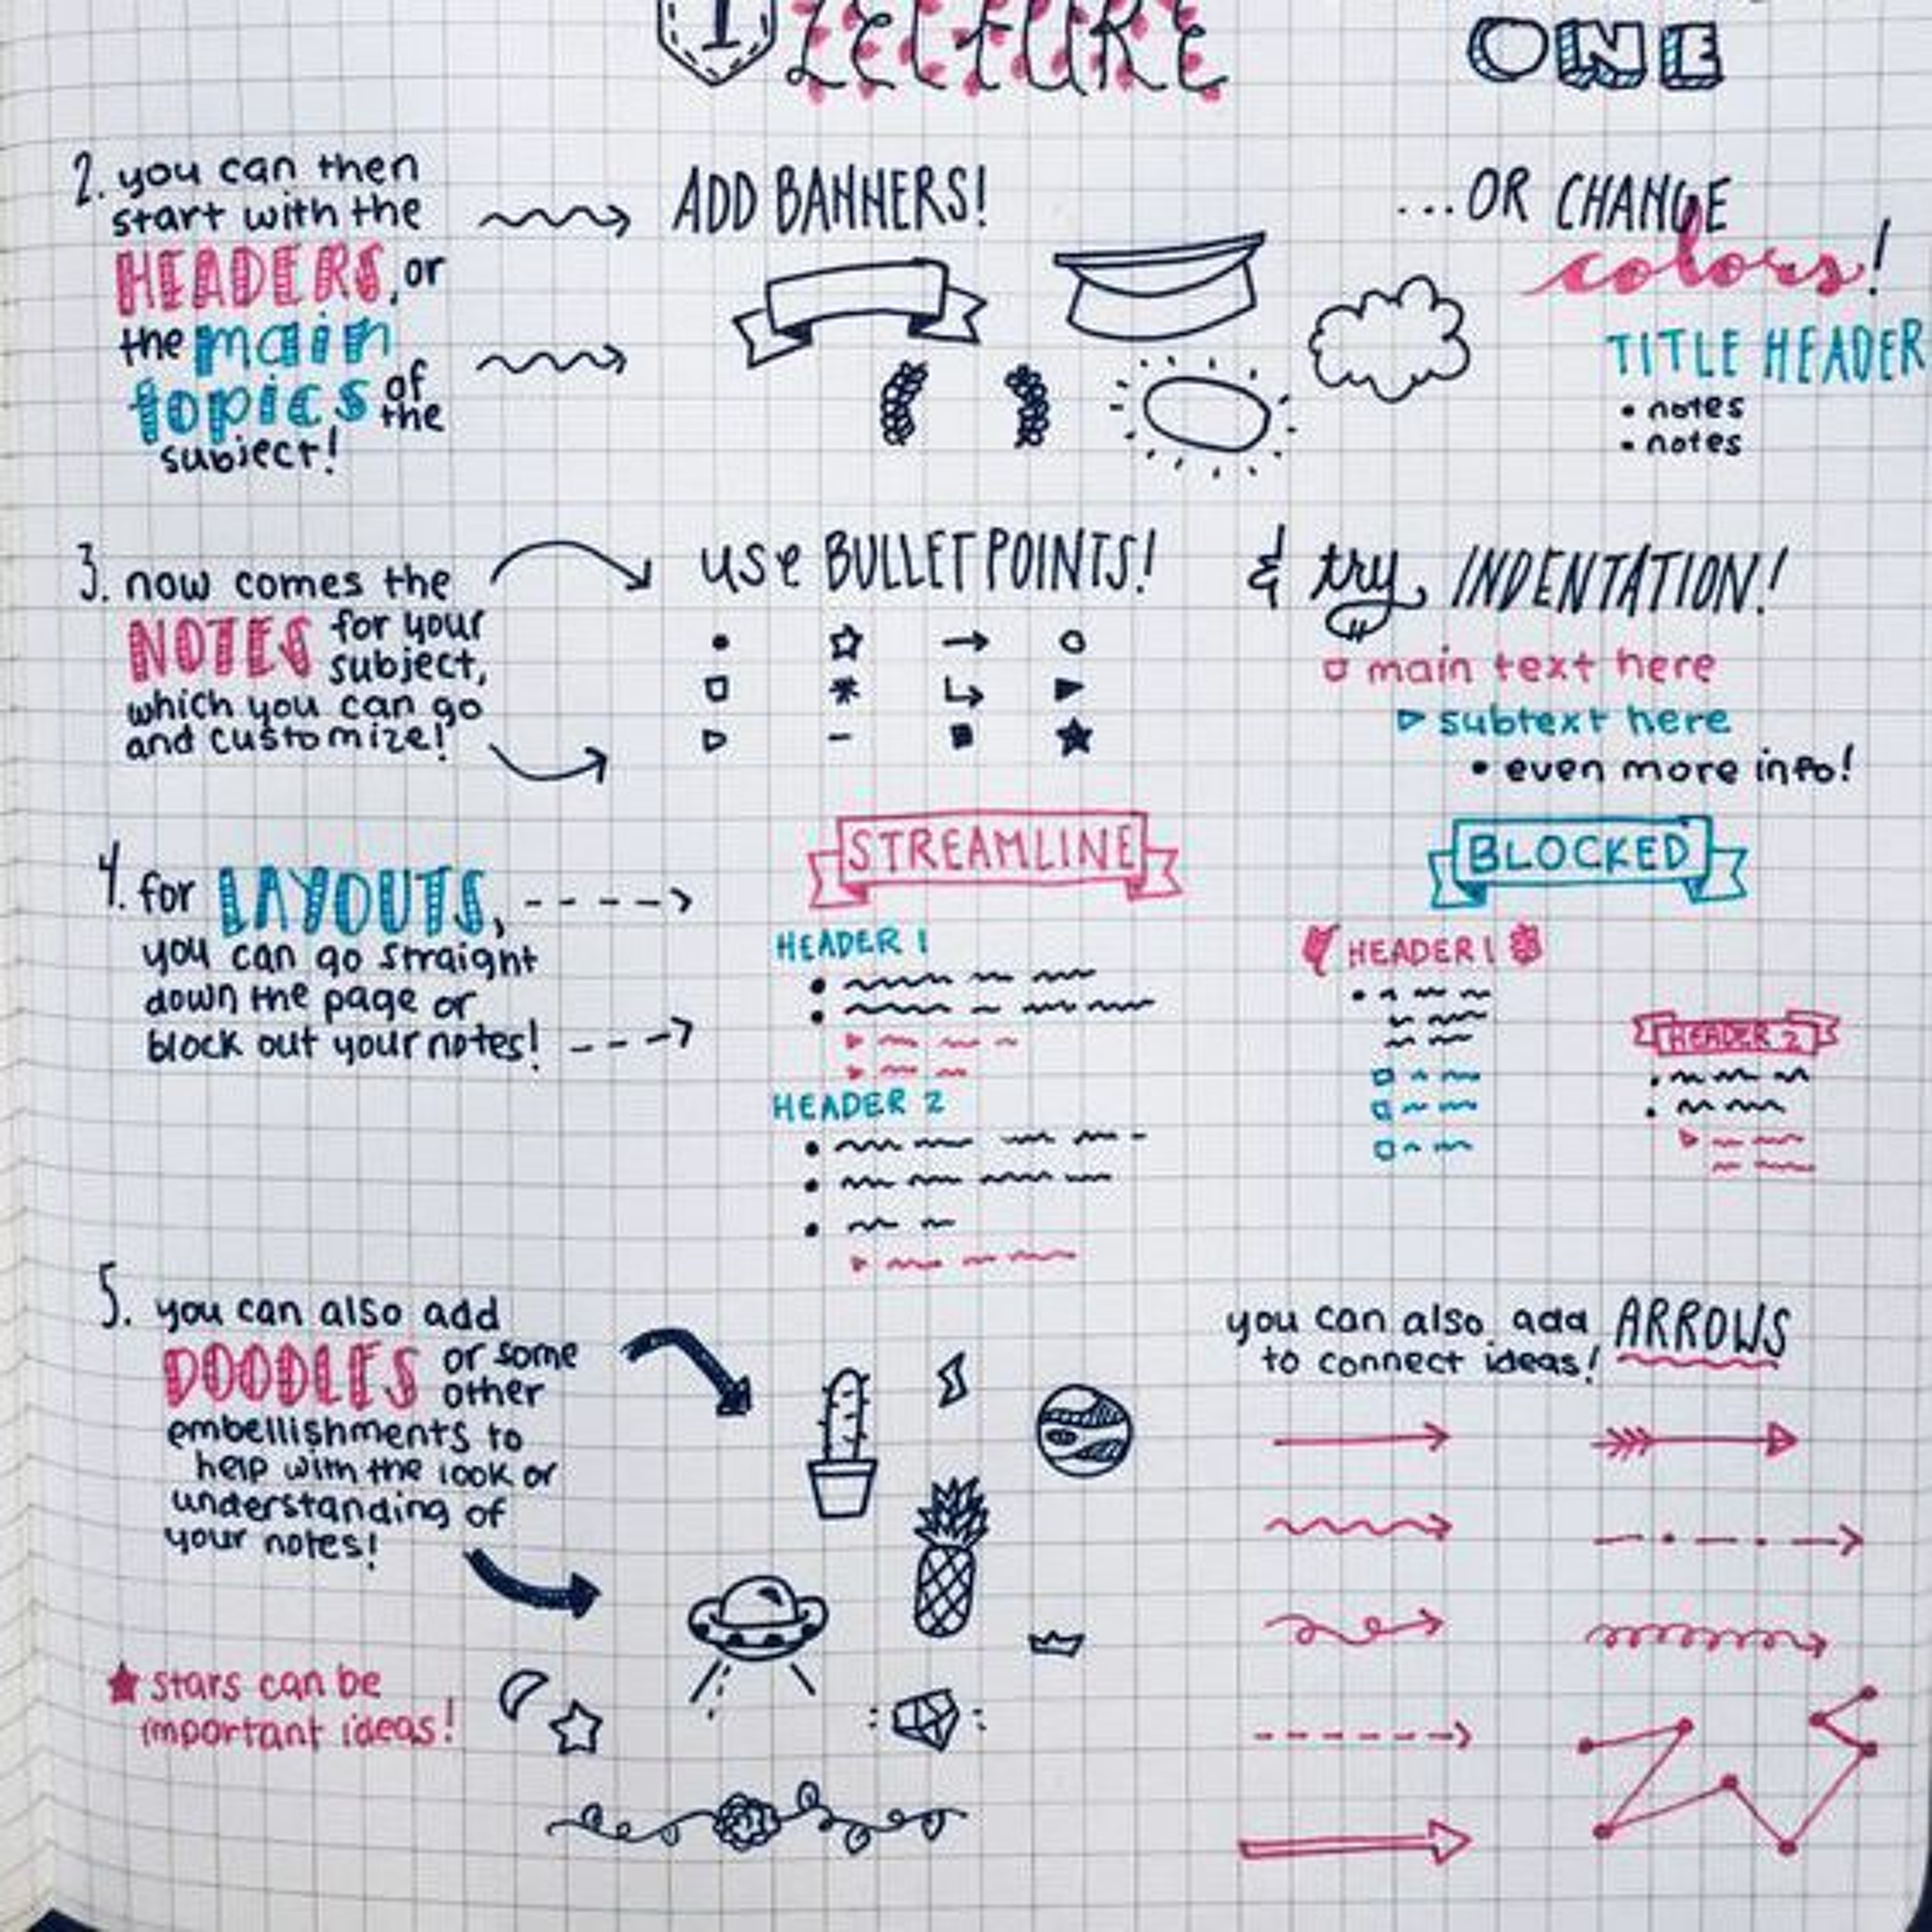 1 LECTURE
ONE
2. you can then
start with the
HEADERS, or
the main
topics of
the
subject!
ADD BANNERS!
...OR CHANGE
colors!
TITLE HEADER
• notes
• notes
3. now comes the
NOTES for your
subject,
which you can go
and customize!
use BULLET POINTS!
& try INDENTATION!
main text here
subtext here
• even more info!
4. for LAYOUTS,
you can go straight
down the page or
block out your notes!
STREAMLINE
HEADER 1
HEADER 2
BLOCKED
HEADER 1
HEADER 2
5. you can also add
DOODLES or some
other
embellishments to
help with the look or
understanding of
your notes!
★ stars can be
important ideas!
you can also add ARROWS
to connect ideas!